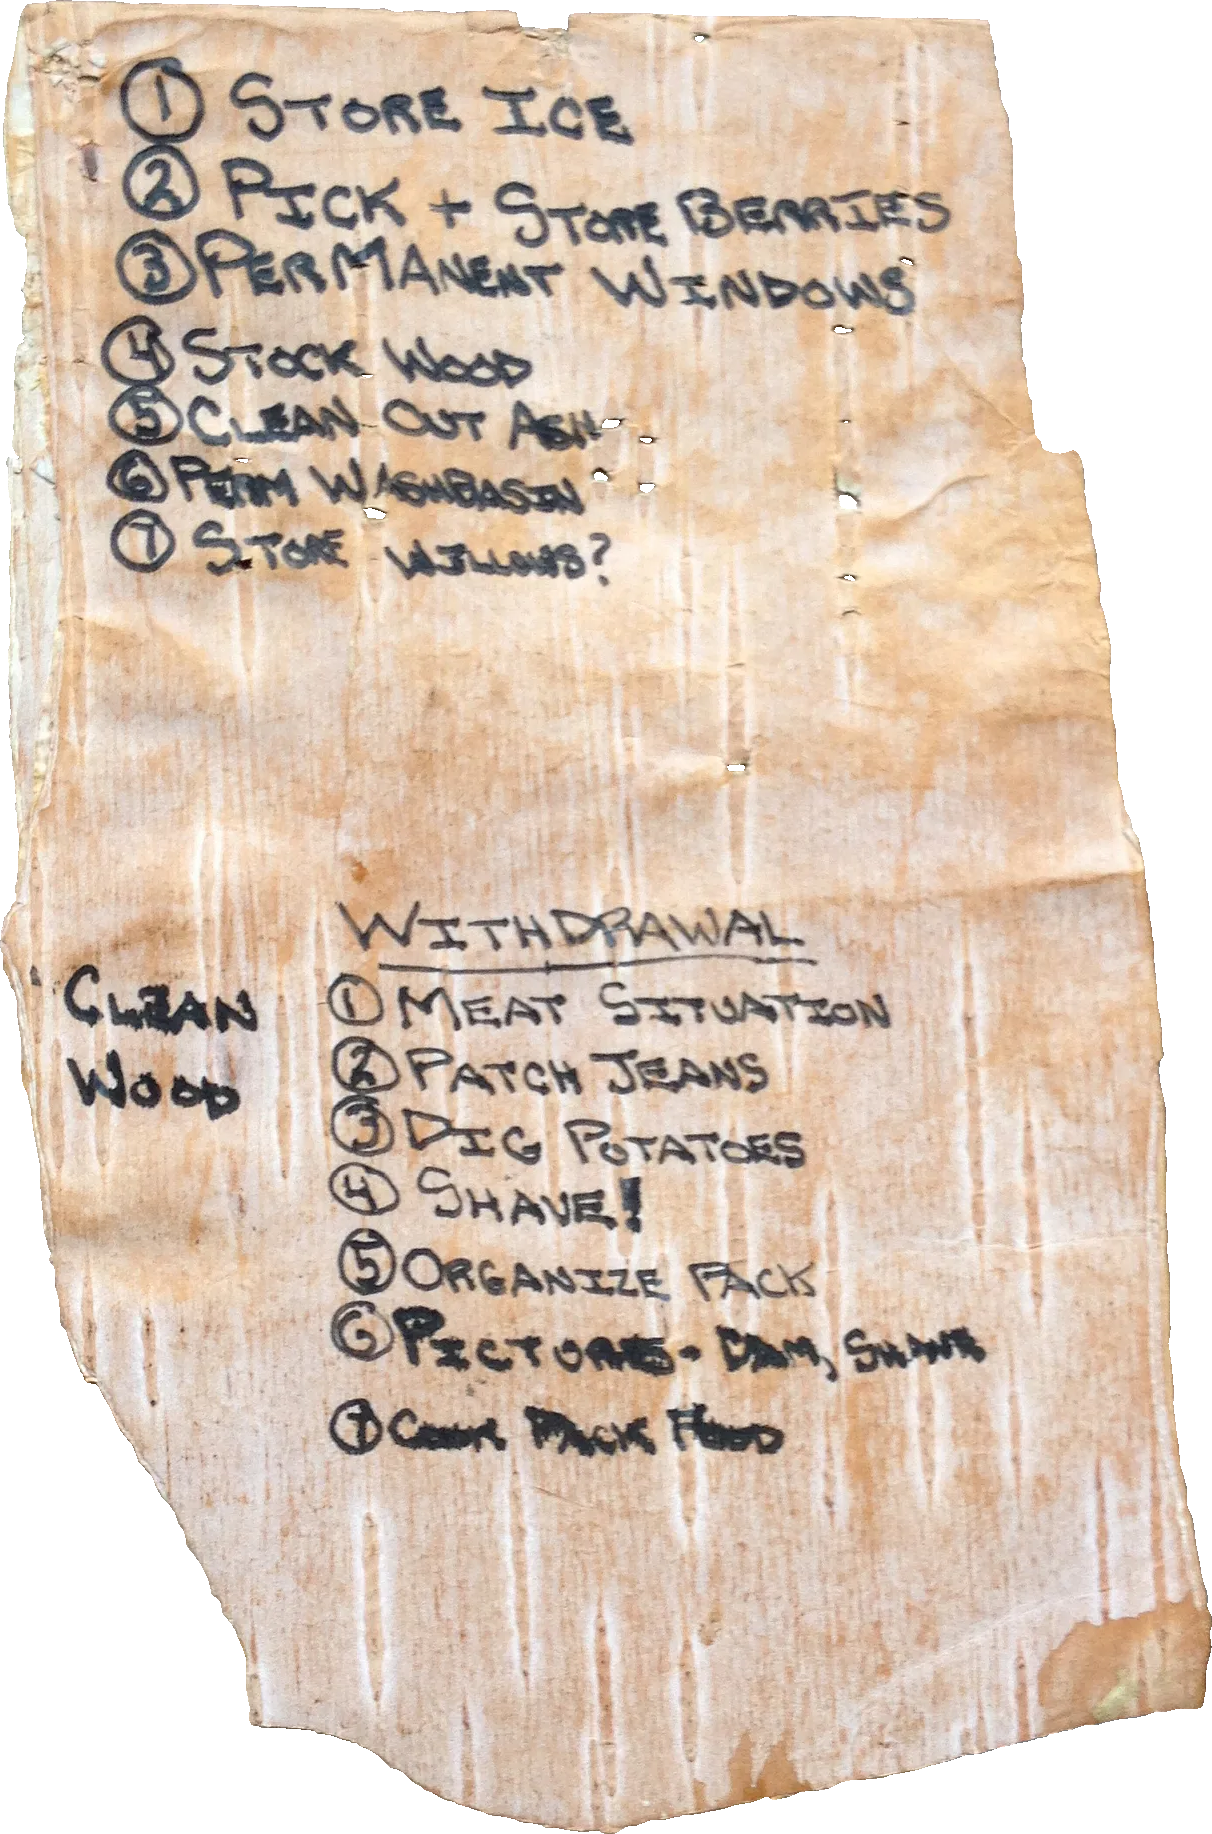 ① STORE ICE
② PICK + STORE BERRIES
③ PERMANENT WINDOWS
④ STOCK WOOD
⑤ CLEAN OUT ASH
⑥ PERM WASHBASIN
⑦ STORE WILLOWS?
WITHDRAWAL
CLEAN
WOOD
① MEAT SITUATION
② PATCH JEANS
③ DIG POTATOES
④ SHAVE!
⑤ ORGANIZE PACK
⑥ PICTURES - DAM,
⑦ COOK PACK FOOD